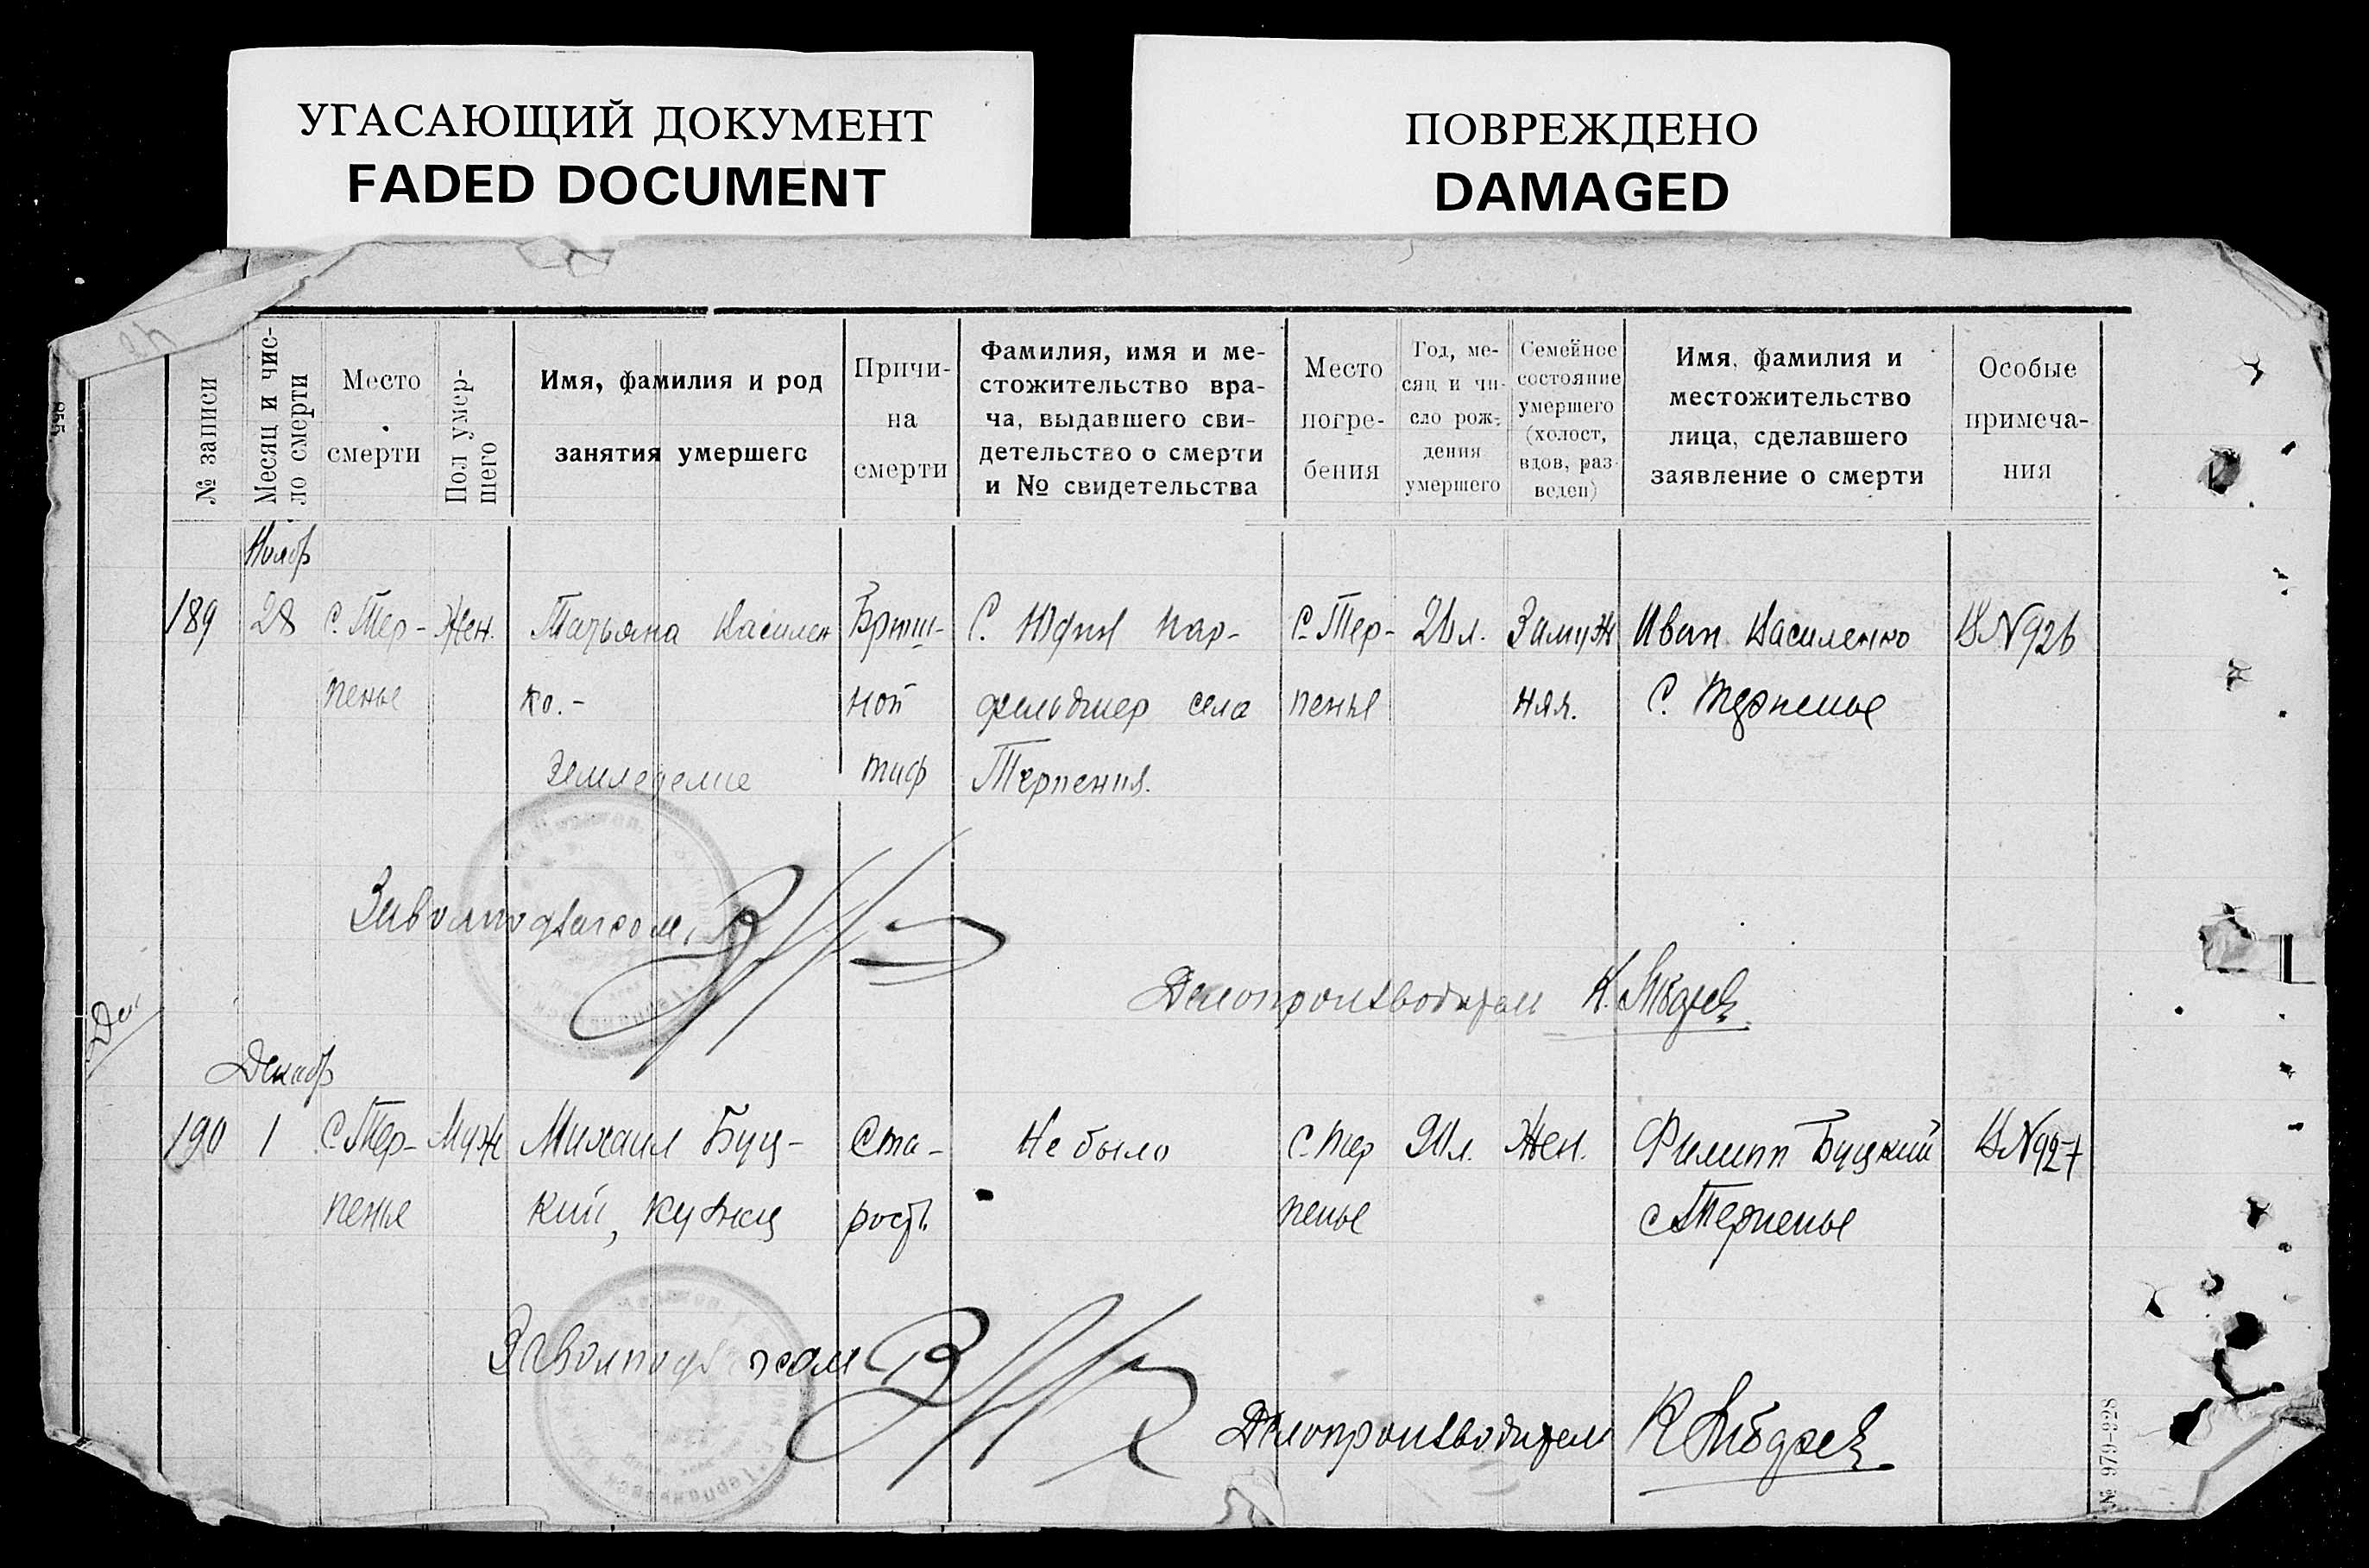 УГАСАЮЩИЙ ДОКУМЕНТ
FADED DOCUMENT
ПОВРЕЖДЕНО
DAMAGED
№ записи
Месяц и чис-
ло смерти
Место
смерти
Пол умер-
шего
Имя, фамилия и род
занятия умершего
Причи-
на
смерти
Фамилия, имя и ме-
стожительство вра-
ча, выдавшего сви-
детельство о смерти
и № свидетельства
Место
погре-
бения
Год, ме-
сяц и чи-
сло рож-
дения
умершего
Семейное
состояние
умершего
(холост,
вдов, раз-
веден)
Имя, фамилия и
местожительство
лица, сделавшего
заявление о смерти
Особые
примеча-
ния
Ноябр
189
28
с. Тер-
пенье
Жен.
Татьяна Василен
ко.-
земледелие
Брюш-
ной
тиф
С. Юдин
фельдшер села
Терпения.
С. Тер-
пенье
Замуж
няя.
Иван Василенко
С. Терпенье
№926
Делопроизводитель
Декабр
190
1
С Тер-
пенье
Муж
Михаил Буц-
кий, кузнец
Ста-
рость
Не было
с. Тер
пенье
Жен.
Филипп Буцкий
с Терпенье
№927
Делопроизводитель
№ 979-928
855